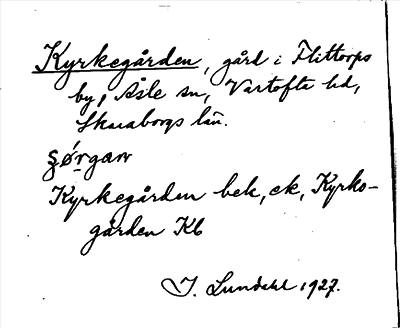 Kyrkegården, gård i Flittorps
by, Åsle sn, Vartofta hd,
Skaraborgs län.
Kyrkegården bek, ek, Kyrko-
gården Kb
I. Lundahl 1927.